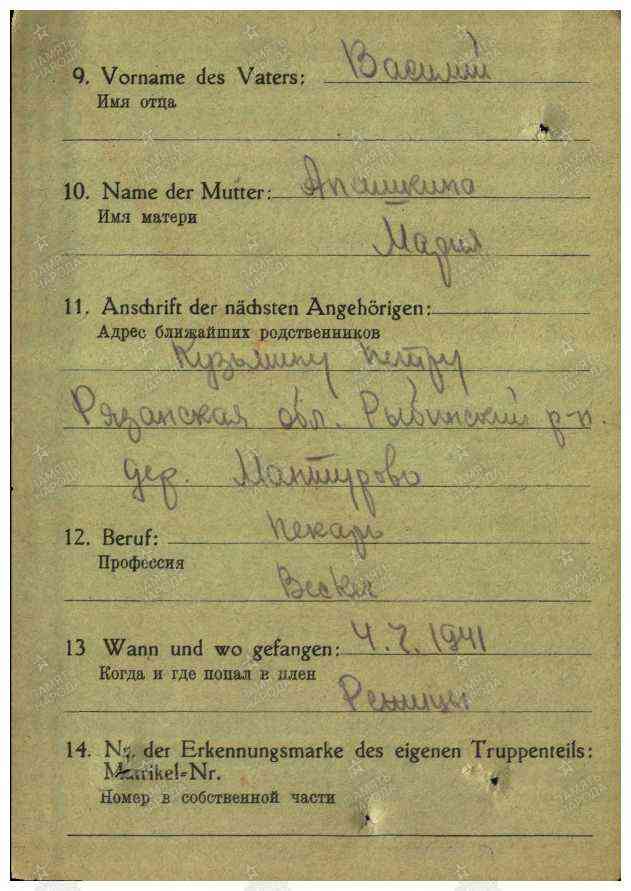 9. Vorname des Vaters: Василий
Имя отца
10. Name der Mutter: Апашкина
Имя матери
Мария
11. Anschrift der nächsten Angehörigen:
Адрес ближайших родственников
Кузьмину Петру
Рязанская обл. Рыбинский р-н.
дер. Мантурово
12. Beruf: пекарь
Профессия
13 Wann und wo gefangen: 4.7.1941
Когда и где попал в плен
14. Nr. der Erkennungsmarke des eigenen Truppenteils:
Matrikel-Nr.
Номер в собственной части